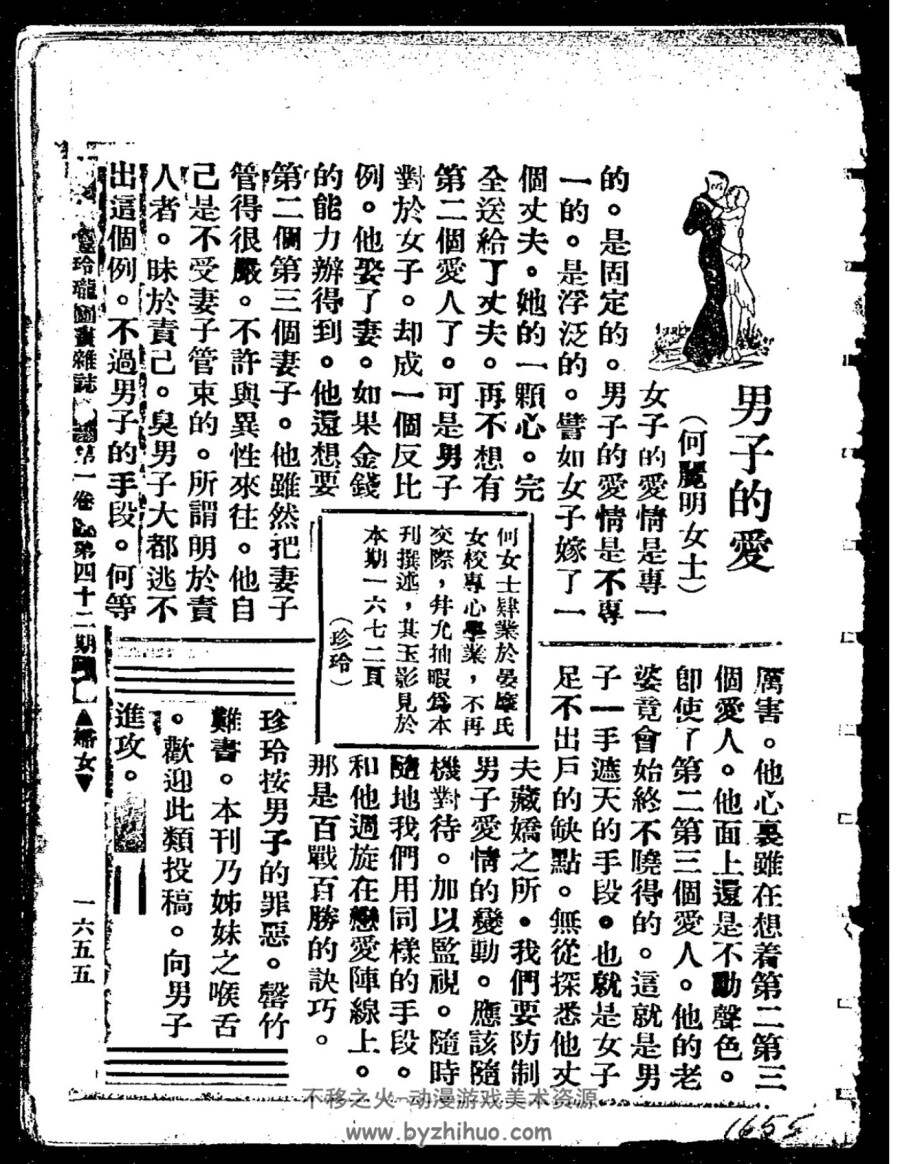 男子的愛
（何麗明女士）
女子的愛情是專一
的。是固定的。男子的愛情是不專
一的。是浮泛的。譬如女子嫁了一
個丈夫。她的一顆心。完
全送給了丈夫。再不想有
第二個愛人了。可是男子
對於女子。却成一個反比
例。他娶了妻。如果金錢
的能力辦得到。他還想要
第二個第三個妻子。他雖然把妻子
管得很嚴。不許與異性來往。他自
己是不受妻子管束的。所謂明於責
人者。昧於責己。臭男子大都逃不
出這個例。不過男子的手段。何等
厲害。他心裏雖在想着第二第三
個愛人。他面上還是不動聲色。
卽使了第二第三個愛人。他的老
婆竟會始終不曉得的。這就是男
子一手遮天的手段。也就是女子
足不出戶的缺點。無從探悉他丈
夫藏嬌之所。我們要防制
男子愛情的變動。應該隨
機對待。加以監視。隨時
隨地我們用同樣的手段。
和他週旋在戀愛陣線上。
那是百戰百勝的訣巧。
何女士肄業於晏摩氏
女校專心學業，不再
交際，幷允抽暇爲本
刊撰述，其玉影見於
本期一六七二頁
（珍玲）
珍玲按男子的罪惡。罄竹
難書。本刊乃姊妹之喉舌
。歡迎此類投稿。向男子
進攻。
玲瓏圖畫雜誌 第一卷 第四十二期 ▲婦女▼ 一六五五
不移之火-动漫游戏美术资源
www.byzhihuo.com
1655